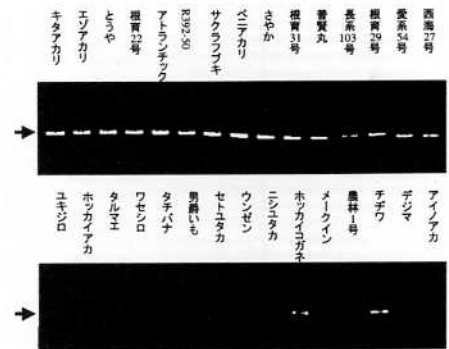 キタアカリ
エゾアカリ
とうや
根育22号
アトランチック
R392-50
サクラフブキ
ベニアカリ
さやか
根育31号
普賢丸
長系103号
根育29号
愛系54号
西海27号
ユキジロ
ホッカイアカ
タルマエ
ワセシロ
タチバナ
男爵いも
セトユタカ
ウンゼン
ニシユタカ
ホッカイコガネ
メークイン
農林1号
チヂワ
デジマ
アイノアカ